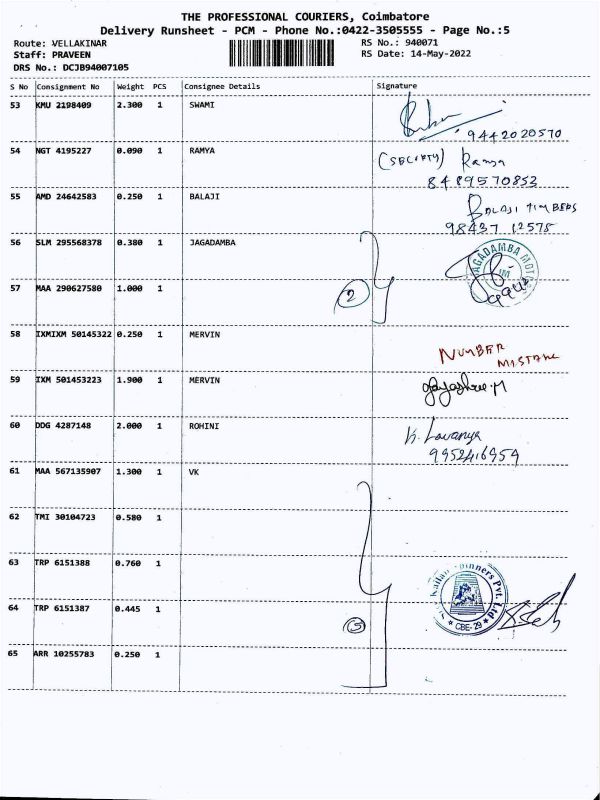 THE PROFESSIONAL COURIERS, Coimbatore
Delivery Runsheet - PCM - Phone No.:0422-3505555 - Page No.:5
Route: VELLAKINAR
RS No.: 940071
Staff: PRAVEEN
RS Date: 14-May-2022
DRS No.: DCJB94007105
S No Consignment No Weight PCS Consignee Details Signature
53 KMU 2198409 2.300 1 SWAMI
9442020570
54 NGT 4195227 0.090 1 RAMYA
(SECURTY) Ramya
8489570853
55 AMD 24642583 0.250 1 BALAJI
BALAJI TIMBERS
98437 12575
56 SLM 295568378 0.380 1 JAGADAMBA
JAGADAMBA MOT
57 MAA 290627580 1.000 1
2
58 IXMIXM 50145322 0.250 1 MERVIN
NUMBER
MISTAKE
59 IXM 501453223 1.900 1 MERVIN
Jayashree.M
60 DDG 4287148 2.000 1 ROHINI
K. Lavanya
9952416959
61 MAA 567135907 1.300 1 VK
62 TMI 30104723 0.580 1
63 TRP 6151388 0.760 1
Kailas Spinners Pvt. Ltd
* CBE-29 *
64 TRP 6151387 0.445 1
5
65 ARR 10255783 0.250 1